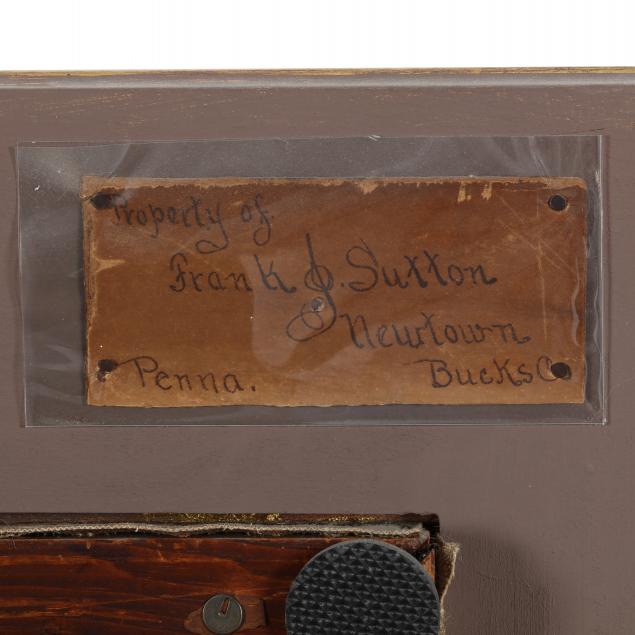 Property of
Frank J. Sutton
Newtown
Penna. Bucks Co